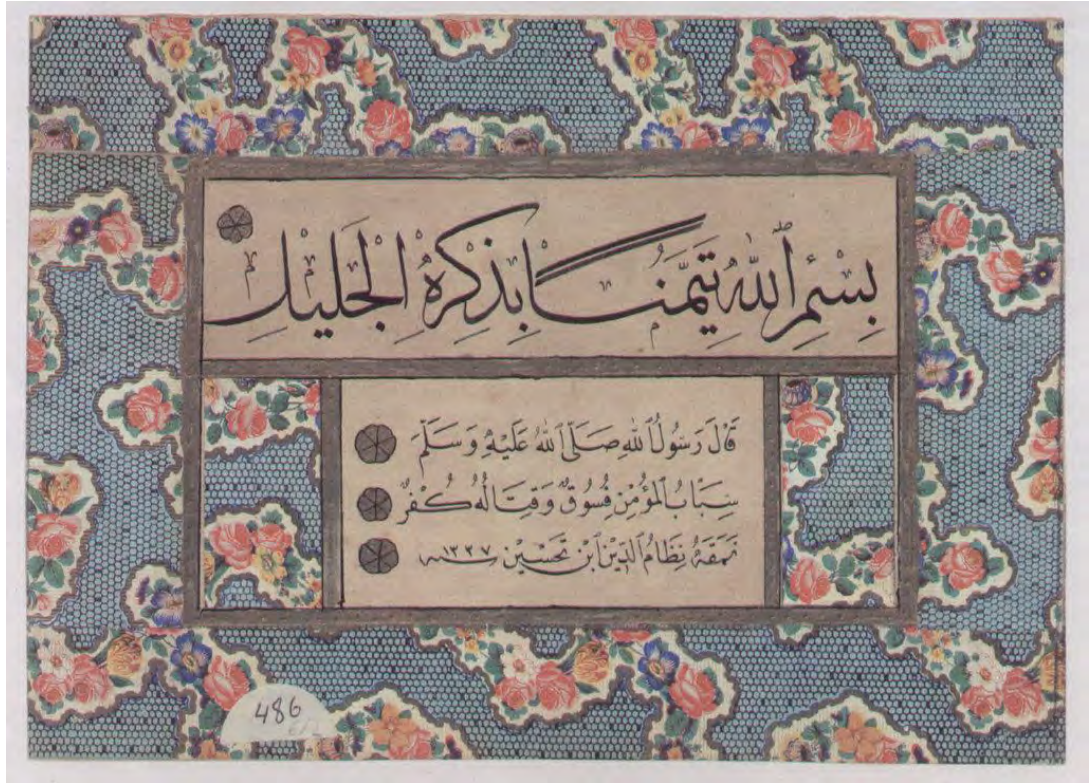 بِسْمِ ٱللّٰهِ تَيَمُّنًا بِذِكْرِهِ الْجَلِيلِ
قَالَ رَسُولُ ٱللّٰهِ صَلَّى ٱللّٰهُ عَلَيْهِ وَسَلَّمَ
سِبَابُ ٱلْمُؤْمِنِ فُسُوقٌ وَقِتَالُهُ كُفْرٌ
نَمَقَهُ نِظَامُ ٱلدِّيْن ٱبْن تَحْسِيْن سنه ١٣٣٧
486